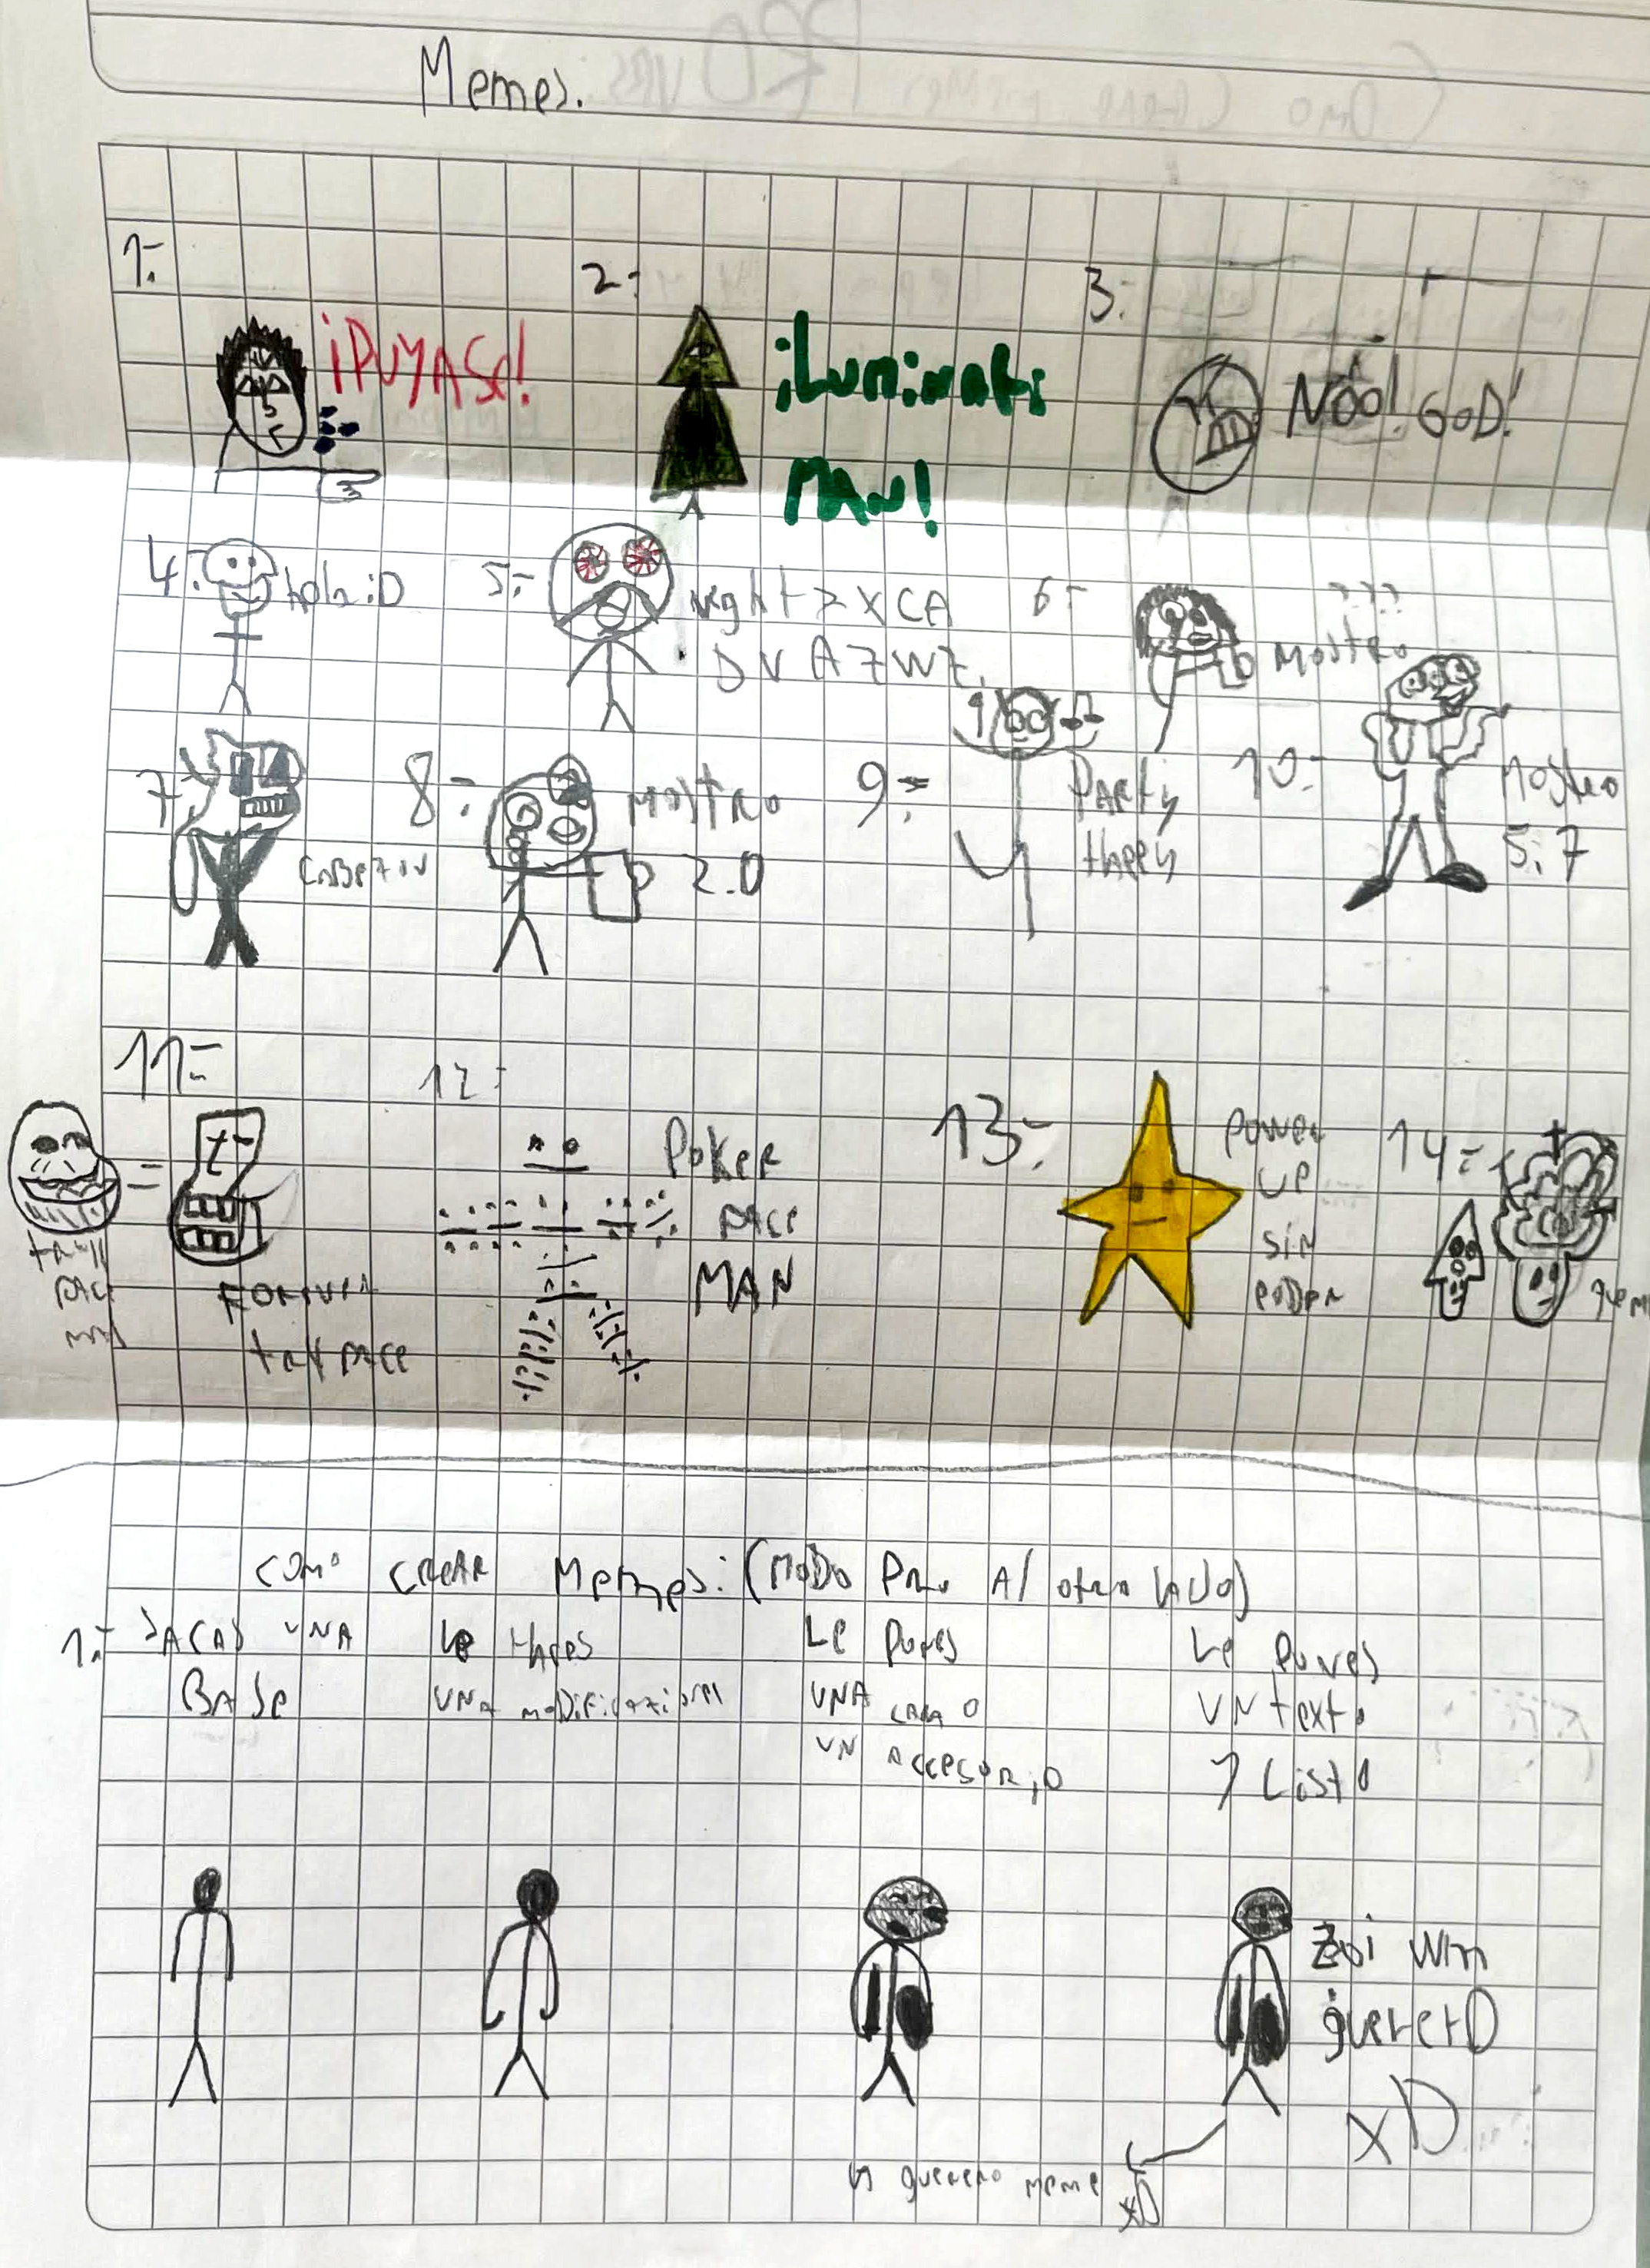 Memes.
1.-
¡PUYASe!
2-
iLuminati
MAN!
3.-
NOO! GOD!
4.-
hola :D
5.-
D V A Z W Z.
6-
???
MOSTRO
7.
CABEZON
8-
MOSTRO
2.0
9.-
PARty
HAPPY
10.-
MOSTRO
5:7
11.-
=
t-
troll
FACE
12-
POKER
FACE
MAN
13.-
POWER
UP
SIN
PODER
14-
COMO CREAR Memes: (MODO PRO Al otro lADO)
1.- SACAS UNA
BASe
Le HACES
UNA moDificazionn
Le PONES
UNA CARA O
UN ACCESORiO
Le PONES
UN texto
Y LISTO
Zoi wm
guererO
xD
guerero meme
xD